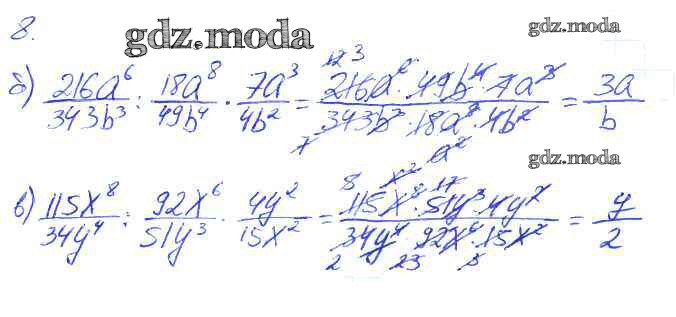 8.
gdz.moda
gdz.moda
б) 216a⁶/343b³ : 18a⁸/49b⁴ · 7a³/4b² = 216a⁶ · 49b⁴ · 7a³/343b³ · 18a⁸ · 4b² = 3a/b
gdz.moda
в) 115x⁸/34y⁴ : 92x⁶/51y³ · 4y²/15x² = 115x⁸ · 51y³ · 4y²/34y⁴ · 92x⁶ · 15x² = y/2